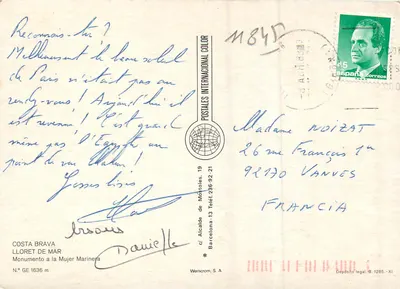 Reconnais-tu ?
Malheureusement le beau soleil
de Paris n'était pas au
rendez-vous ! Aujourd'hui il
est revenu ! C'est grand
même pas l'Egypte au
point de vue
Grosses bises
bisous
Danielle
COSTA BRAVA
LLORET DE MAR
Monumento a la Mujer Marinera
N.º SE 1636
POSTALES INTERNACIONAL COLOR
c/ Alcalde de Móstoles, 19
Barcelona-13 Telf. 236-92-21
Wericrom, S. A.
11845
45
España
correos
Madame NOIZAT
26 rue François 1er
92170 VANVES
FRANCIA
Depósito legal B.